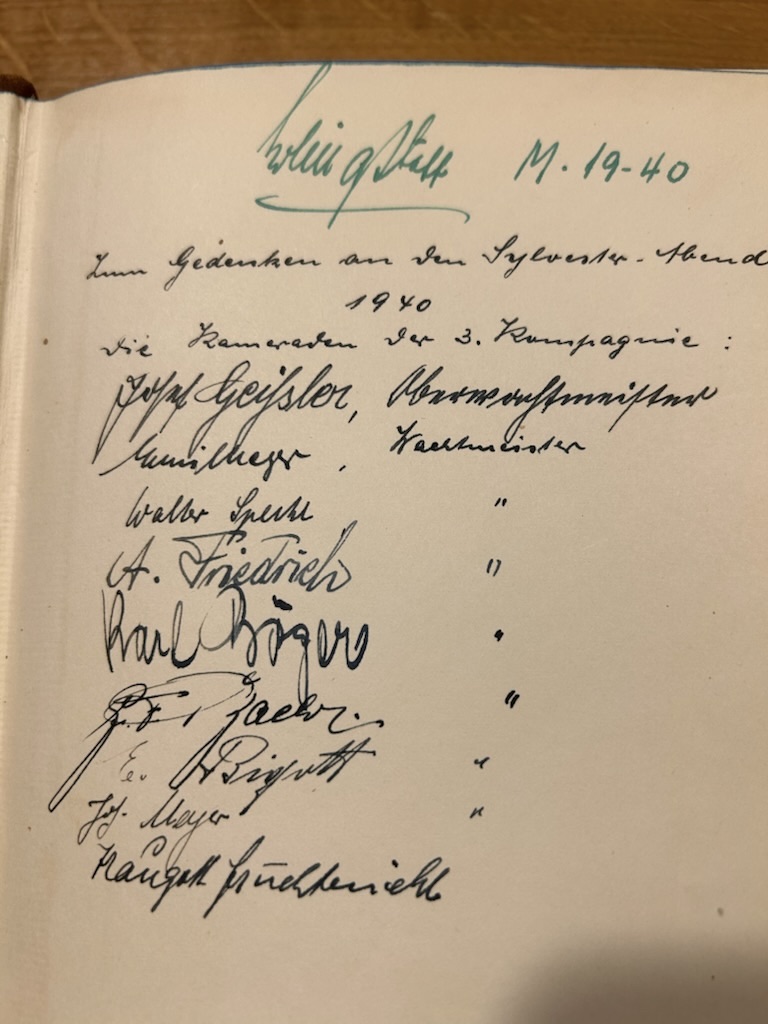 M. 19-40
Zum Gedenken an den Sylvester-Abend
1940
Die Kameraden der 3. Kompagnie :
Josef Geißler, Oberwachtmeister
Emil Mayer , Wachtmeister
Walter Specht "
A. Friedrich "
Karl Böger "
"
E. Bigott "
Joh. Meyer "
Fruchtenicht